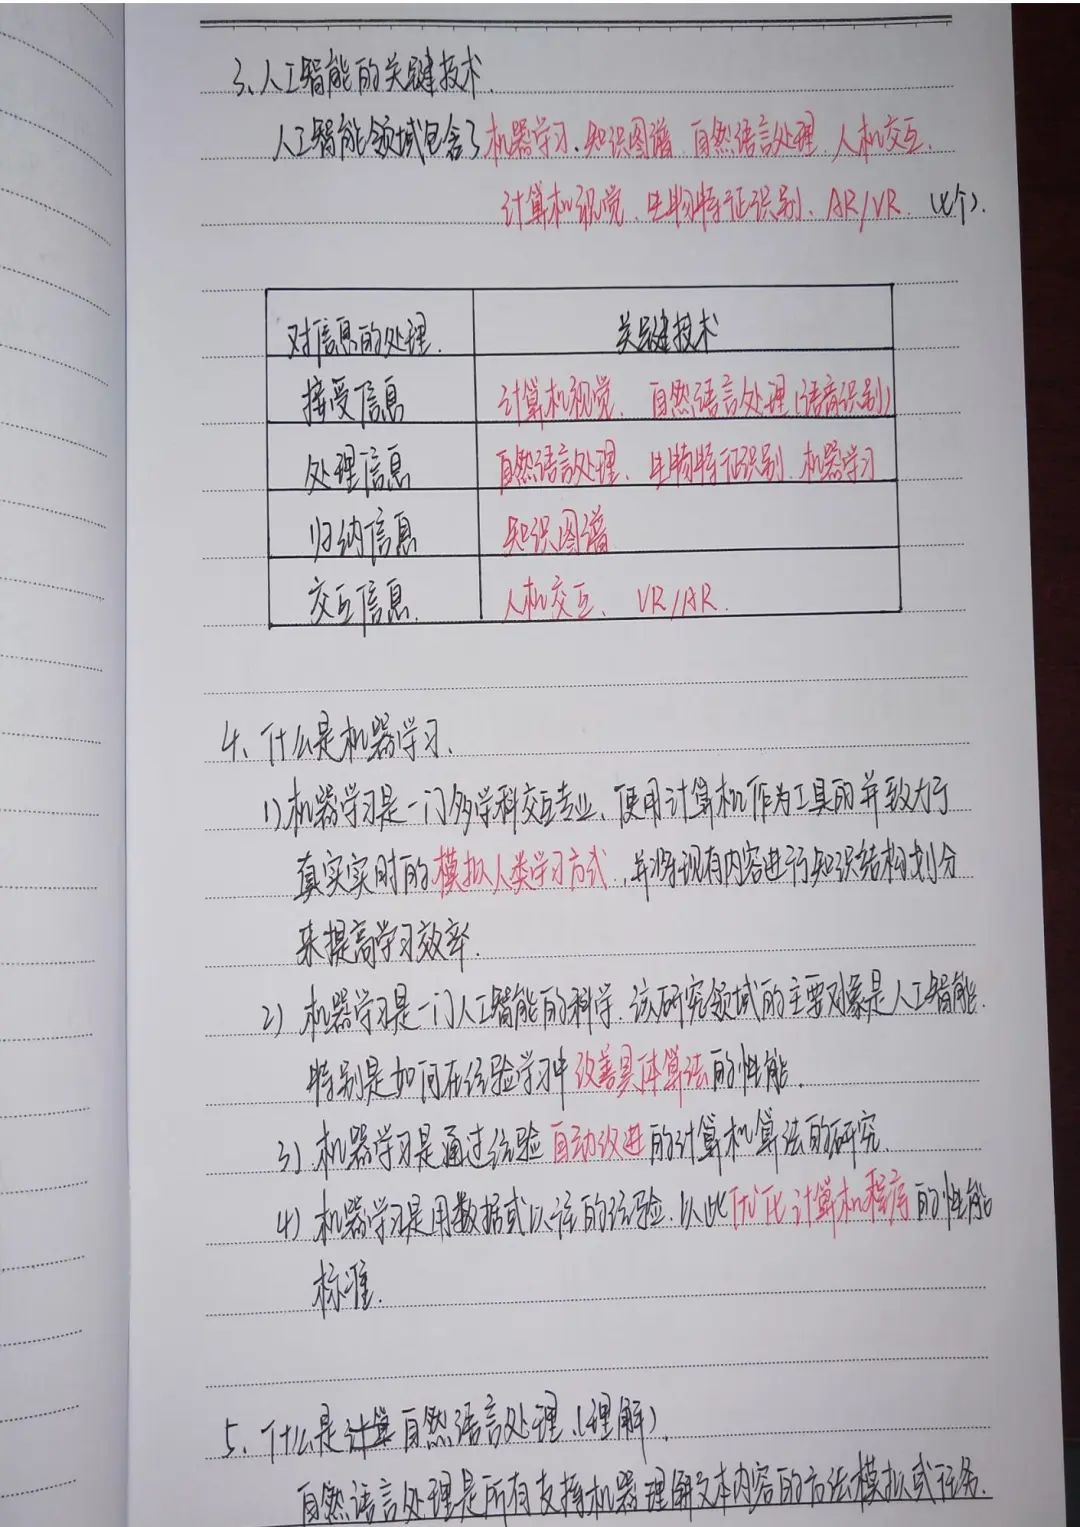 3、人工智能的关键技术.
人工智能领域包含了机器学习、知识图谱、自然语言处理、人机交互、
计算机视觉、生物特征识别、AR/VR. (七个).
对信息的处理. 关键技术
接受信息 计算机视觉、自然语言处理(语音识别)
处理信息 自然语言处理、生物特征识别、机器学习
归纳信息 知识图谱
交互信息. 人机交互、VR/AR.
4、什么是机器学习.
1)机器学习是一门多学科交互专业、使用计算机作为工具的并致力于
真实实时的模拟人类学习方式,并将现有内容进行知识结构划分
来提高学习效率.
2) 机器学习是一门人工智能的科学.该研究领域的主要对象是人工智能.
特别是如何在经验学习中改善具体算法的性能.
3) 机器学习是通过经验自动改进的计算机算法的研究.
4) 机器学习是用数据或以往的经验.以此优化计算机程序的性能
标准.
5、什么是计算自然语言处理.(理解).
自然语言处理是所有支持机器理解文本内容的方法模拟或任务.